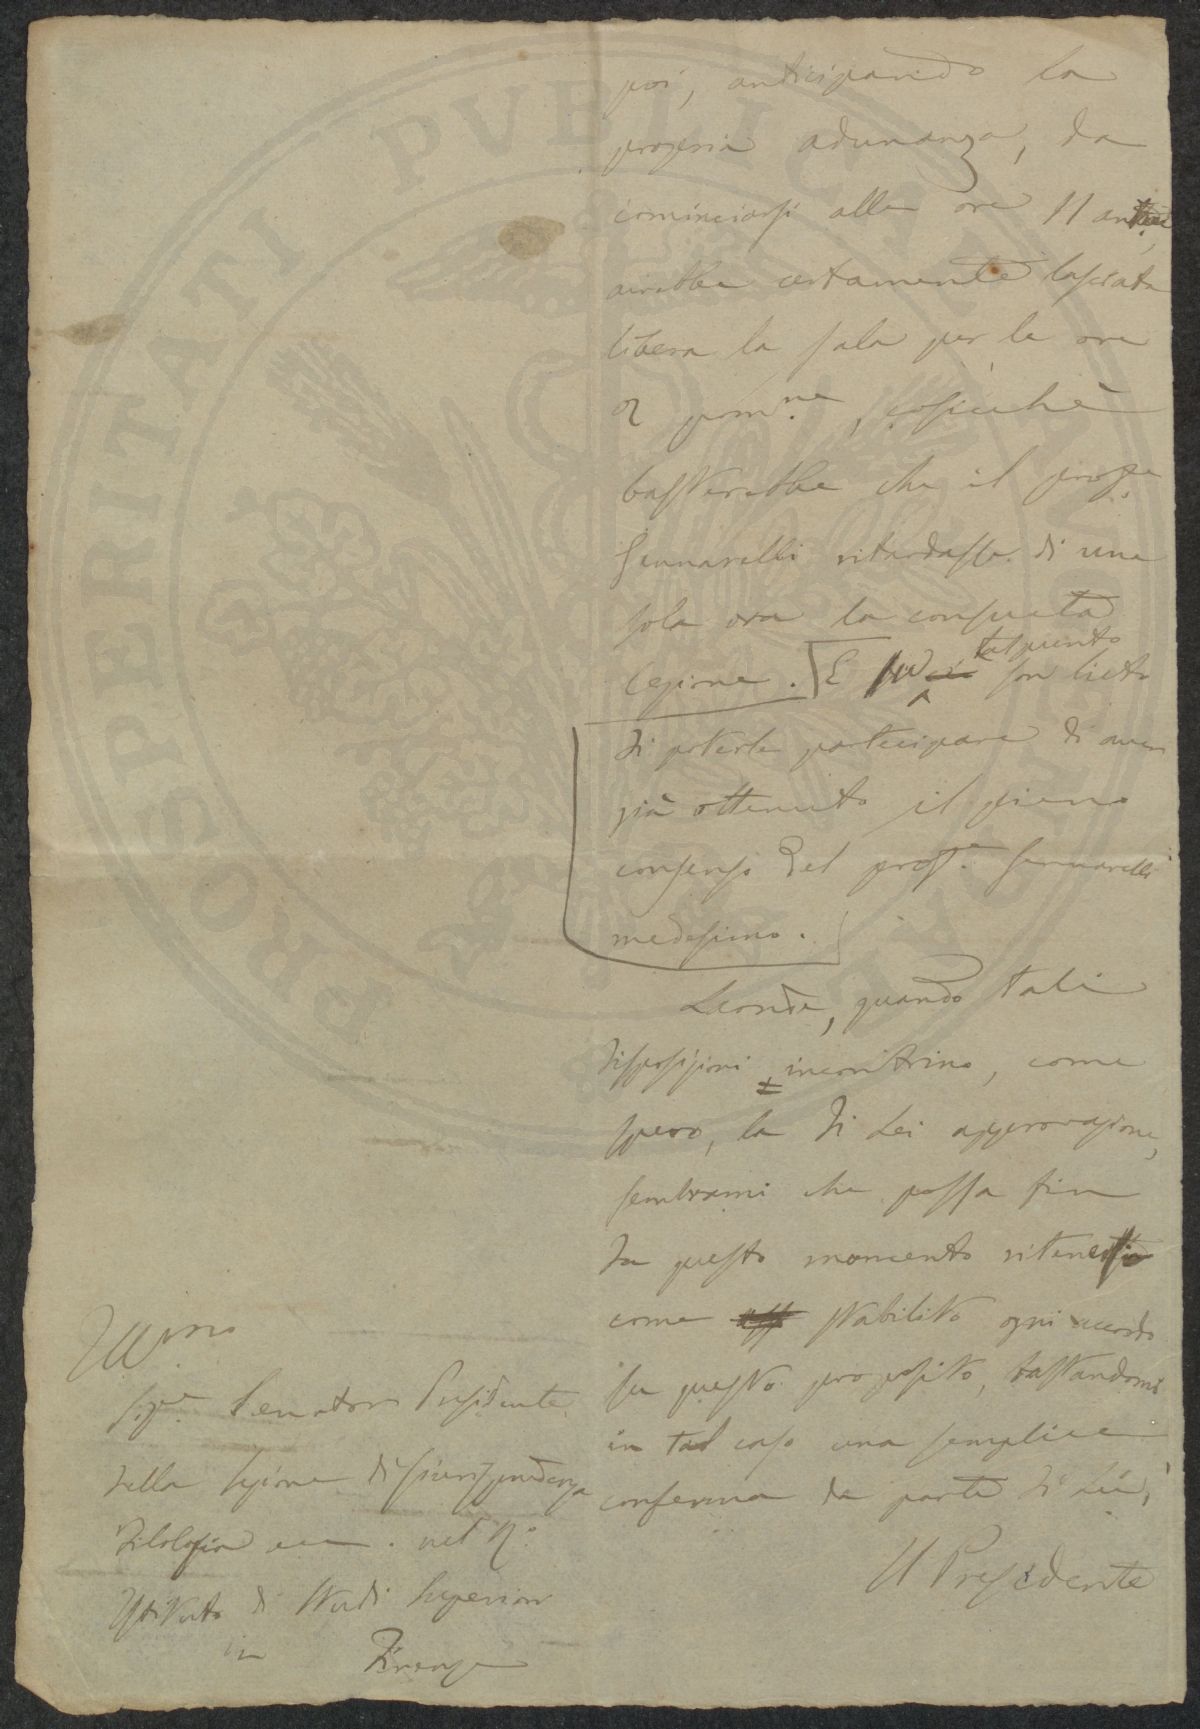 poi, anticipando la
propria adunanza, da
cominciarsi alle ore 11 ant
avrebbe certamente lasciata
libera la sala per le ore
2 pomne, cosicchè
basterebbe che il profre
Gennarelli ritardasse di una
sola ora la consueta
lezione. E su tal punto son lieto
di poterle partecipare di aver
già ottenuto il pieno
consenso del profre Gennarelli
medesimo.
Leonde, quando tali
disposizioni incontrino, come
spero, la di Lei approvazione,
sembrami che possa fin
da questo momento ritenersi
come stabilito ogni accordo
su questo proposito, bastandomi
in tal caso una semplice
conferma da parte di Lei,
Il Presidente
Illmo
Sigr. Senatore Presidente
della Sezione di Giurisprudenza
Filologia ecc. nel R.
Istituto di Studi Superiori
in Firenze
PROSPERITATI PVBLICAE AVGENDAE